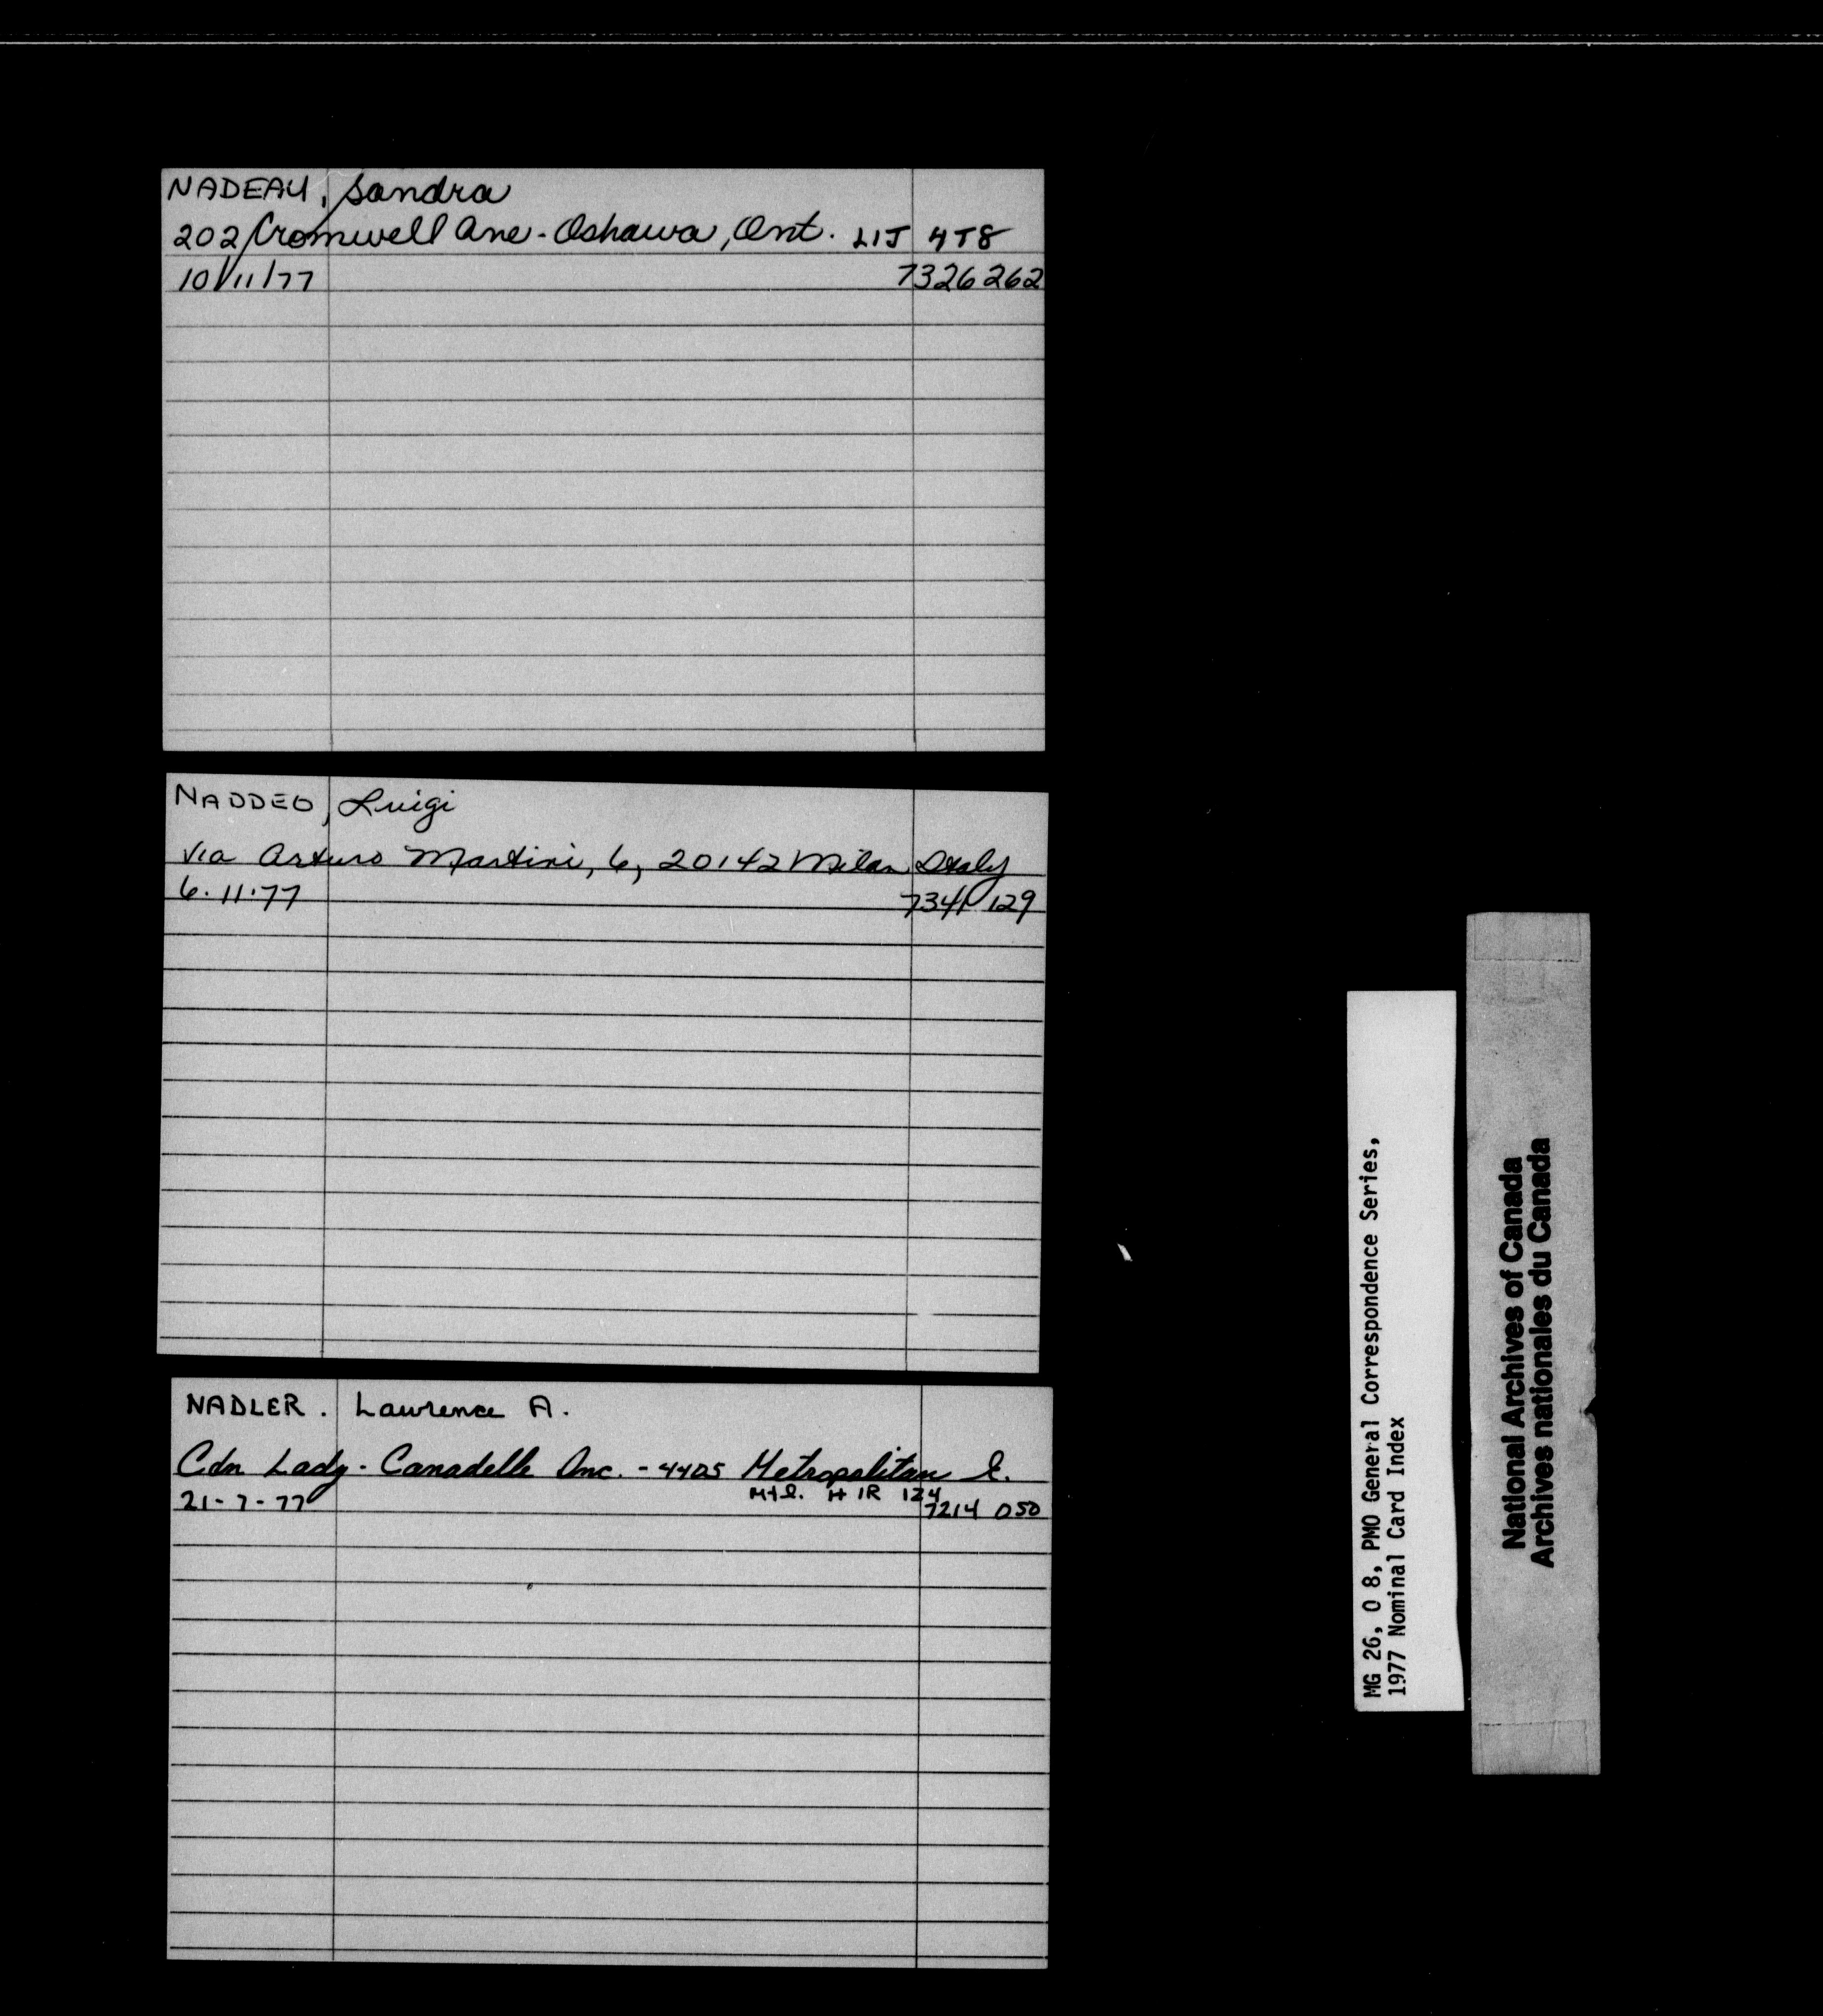 NADEAU, Sandra
202 Cromwell Ave - Oshawa, Ont. L1J 4T8
10/11/77 7326262
NADDEO, Luigi
Via Arturo Martini, 6, 20142 Milan Italy
6.11.77 7341 129
NADLER. Lawrence A.
Cdn Lady - Canadelle Inc. - 4405 Metropolitan E.
Mtl. H1R 1Z4
21-7-77 7214 050
MG 26, O 8, PMO General Correspondence Series,
1977 Nominal Card Index
National Archives of Canada
Archives nationales du Canada